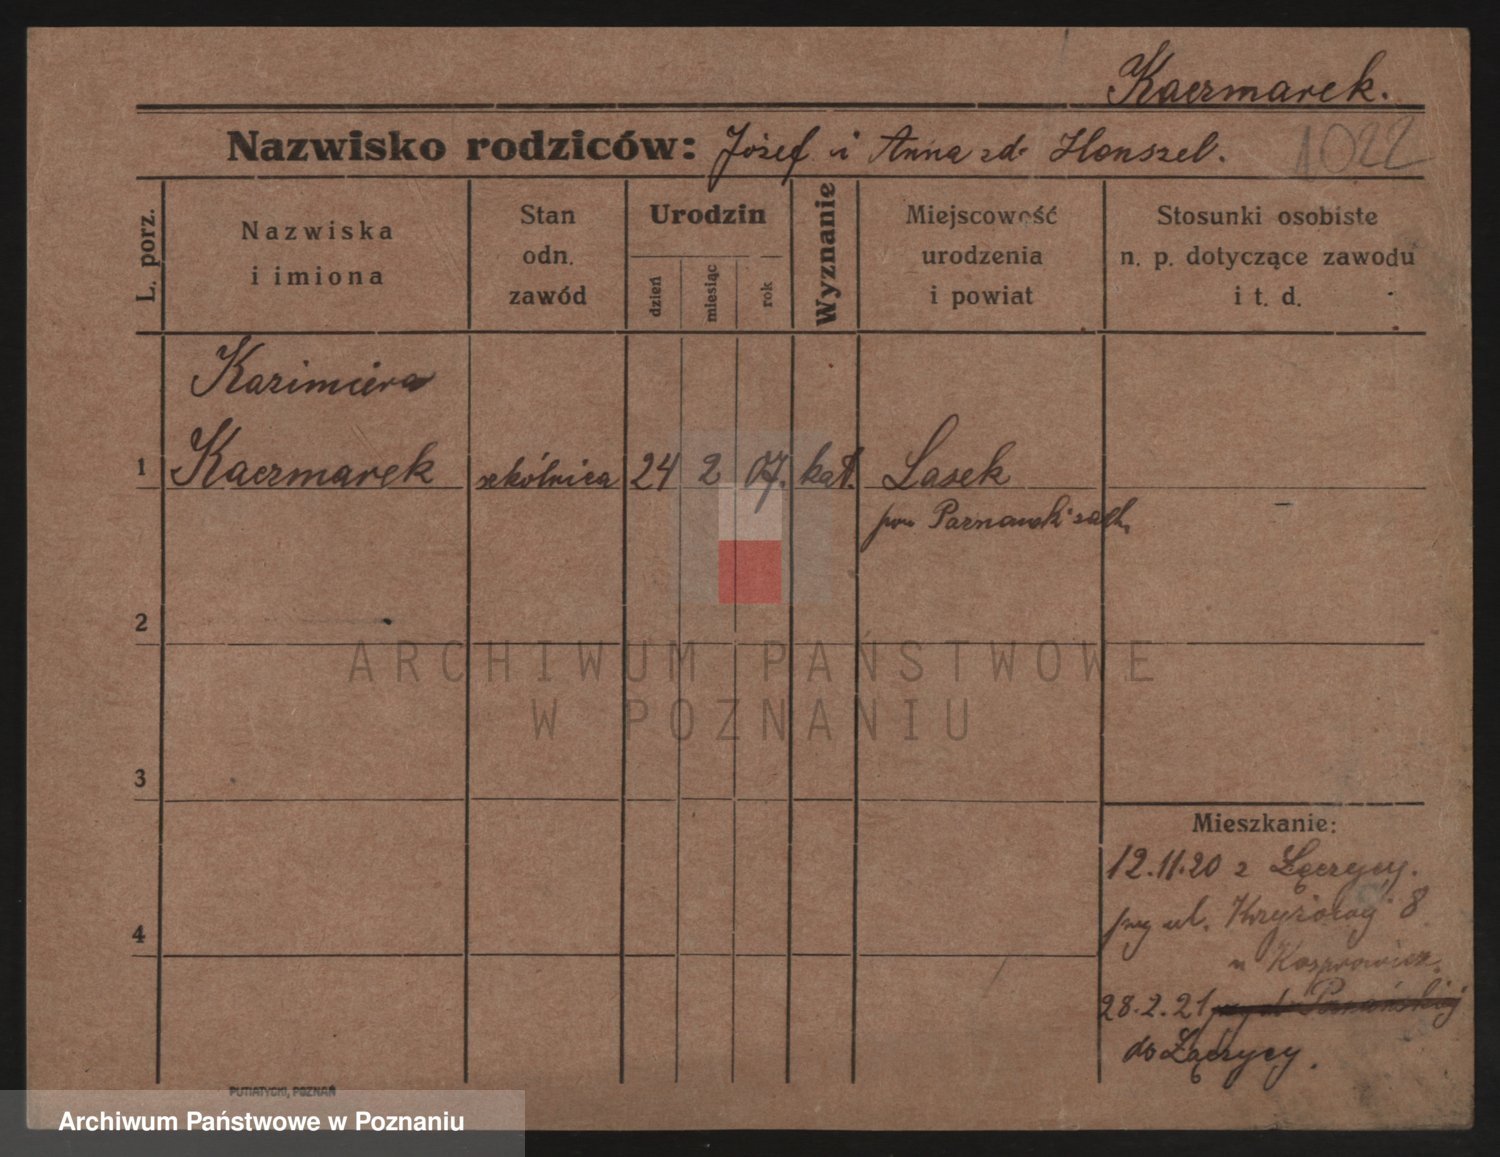 Kaczmarek.
Nazwisko rodziców: Józef i Anna zd. Honszel.
1022
L. porz.
Nazwiska
i imiona
Stan
odn.
zawód
Urodzin
dzień
miesiąc
rok
Wyznanie
Miejscowość
urodzenia
i powiat
Stosunki osobiste
n. p. dotyczące zawodu
i t. d.
Kazimiera
1 Kaczmarek szkólnica 24 2 07. kat. Lasek
pow. Poznański zach.
2
3
4
ARCHIWUM PAŃSTWOWE
W POZNANIU
Mieszkanie:
12.11.20 z Łęczycy.
przy ul. Krzyżowej 8
u Kasprowicz.
28.2.21 przy ul. Poznańskiej
do Łęczycy.
PUTIATYCKI, POZNAŃ
Archiwum Państwowe w Poznaniu